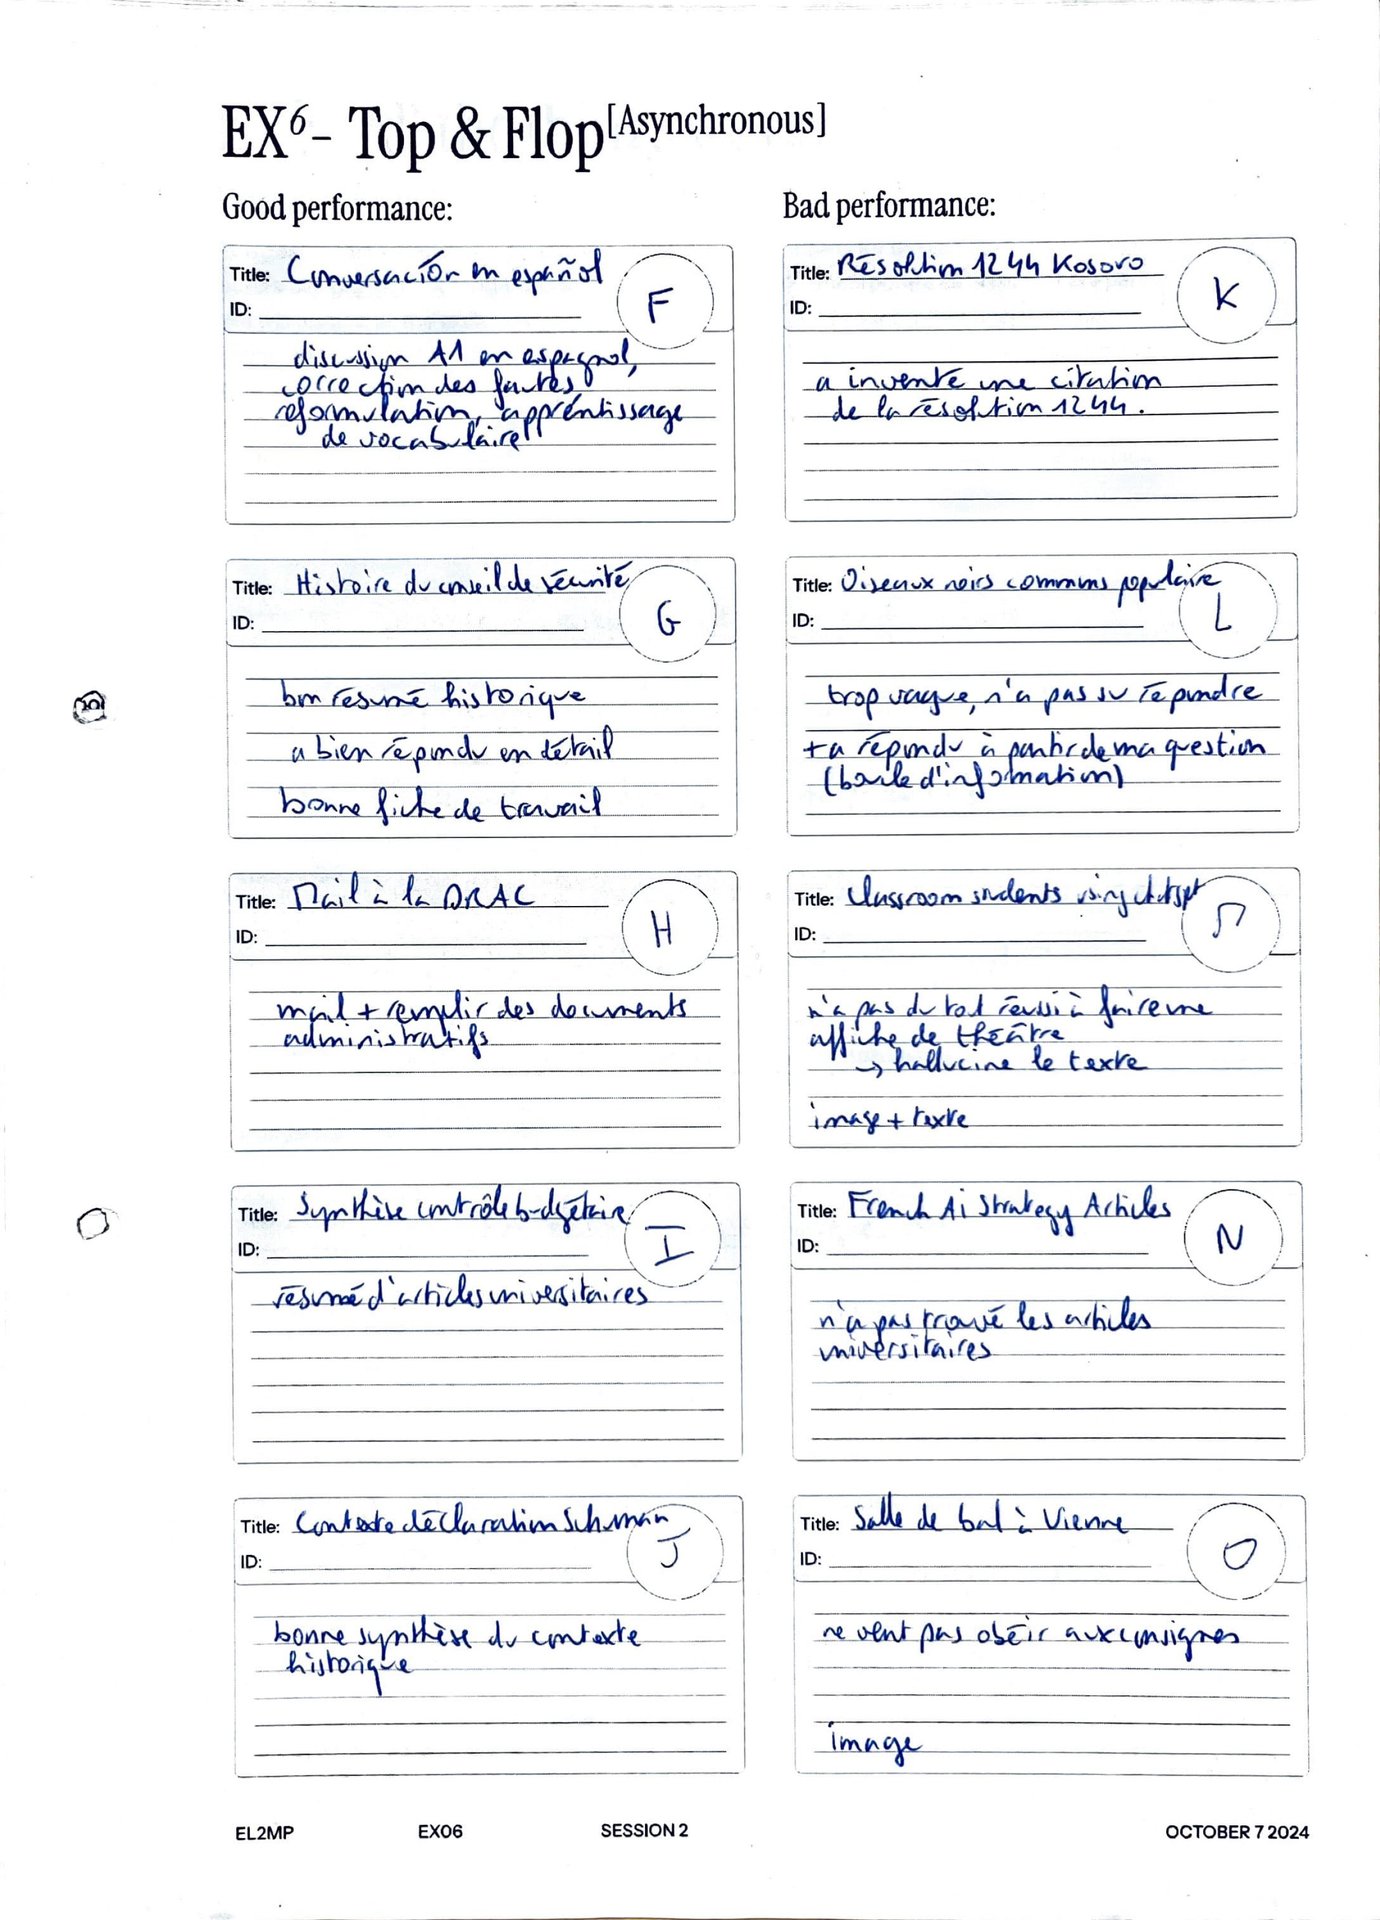 EX6 - Top & Flop [Asynchronous]
Good performance:
Title: Conversación en español
ID:
F
discussion A1 en espagnol,
correction des fautes
reformulation, apprentissage
de vocabulaire
Title: Histoire du conseil de sécurité
ID:
G
bon résumé historique
a bien répondu en détail
bonne fiche de travail
Title: Mail à la DRAC
ID:
H
mail + remplir des documents
administratifs
Title: Synthèse contrôle budgétaire
ID:
I
résumé d'articles universitaires
Title: Contexte déclaration Schuman
ID:
J
bonne synthèse du contexte
historique
Bad performance:
Title: Résolution 1244 Kosovo
ID:
K
a inventé une citation
de la résolution 1244.
Title: Oiseaux noirs communs populaire
ID:
L
trop vague, n'a pas su répondre
+ a répondu à partir de ma question
(boucle d'information)
Title: Classroom students using chatgpt
ID:
M
n'a pas du tout réussi à faire une
affiche de théâtre
→ hallucine le texte
image + texte
Title: French Ai Strategy Articles
ID:
N
n'a pas trouvé les articles
universitaires
Title: Salle de bal à Vienne
ID:
O
ne veut pas obéir aux consignes
image
EL2MP EX06 SESSION 2 OCTOBER 7 2024